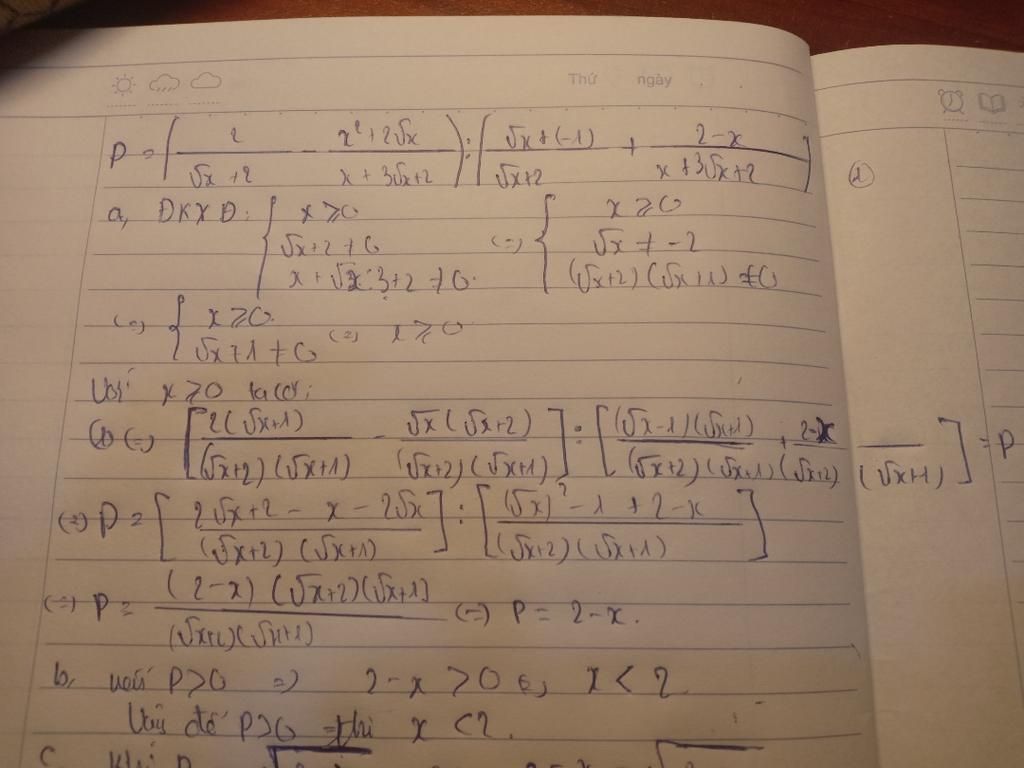 Thứ ngày
P = (2/(√x+2) - (x²+2√x)/(x+3√x+2)) : [(√x+(-1))/(√x+2) + (2-x)/(x+3√x+2)]
a, ĐKXĐ: { x ≥ 0; √x+2 ≠ 0; x+√x.3+2 ≠ 0. (=) { x ≥ 0; √x ≠ -2; (√x+2)(√x+1) ≠ 0
(=) { x ≥ 0; √x+1 ≠ 0 (=) x ≥ 0
Với x ≥ 0 ta có:
(1) (=) [2(√x+1)/((√x+2)(√x+1)) - √x(√x+2)/((√x+2)(√x+1))] : [(√x-1)(√x+1)/((√x+2)(√x+1)) + (2-x)/((√x+2)(√x+1))] = P
(=) P = [(2√x+2-x-2√x)/((√x+2)(√x+1))] : [((√x)²-1+2-x)/((√x+2)(√x+1))]
(=) P = (2-x)(√x+2)(√x+1)/((√x+2)(√x+1)) (=) P = 2-x.
b, P>0 => 2-x > 0 (=) x < 2
Vậy để P>0 thì x < 2.
c, Khi P